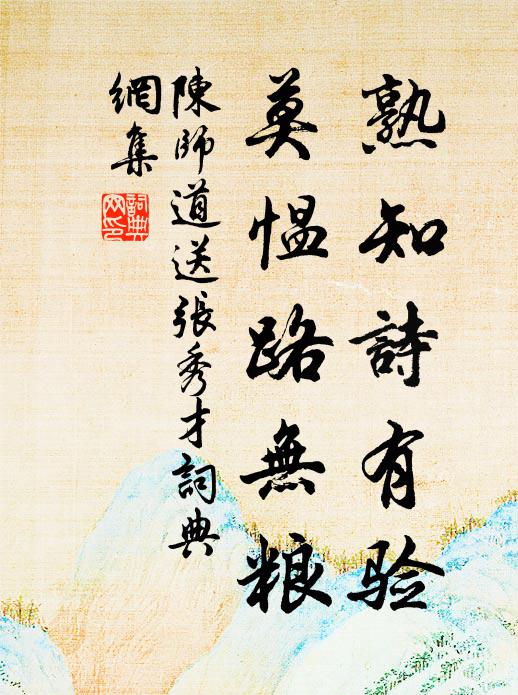 熟知詩有验
莫愠路無粮
陳師道送張秀才詞典
網集
詞典
网印